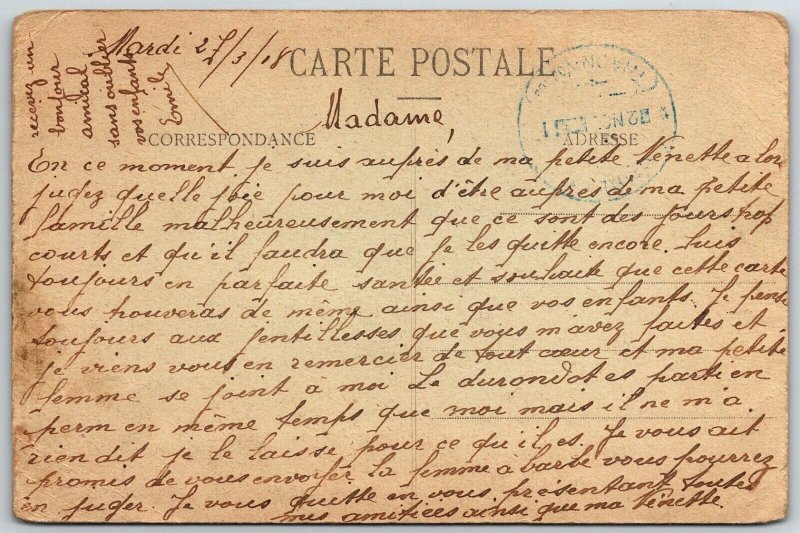 Mardi 27/3/18
CARTE POSTALE
Madame,
CORRESPONDANCE
ADRESSE
En ce moment je suis auprès de ma petite Nénette alors
jugez quelle joie pour moi d'être auprès de ma petite
famille malheureusement que ce sont des jours trop
courts et qu'il faudra que je les quitte encore. Suis
toujours en parfaite santée et souhaite que cette carte
vous trouveras de même ainsi que vos enfants. Je pense
toujours aux jentillesses que vous m'avez faites et
je viens vous en remercier de tout cœur et ma petite
femme se joint à moi Le durondot es parti en
perm en même temps que moi mais il ne m'a
rien dit je le laisse pour ce qu'il es. Je vous ait
promis de vous envoyer la femme a barbe vous pourrez
en juger. Je vous quitte en vous présentant toutes
mes amitiées ainsi que ma Nénette.
recevez un
bonjour
amical
sans oublier
vos enfants
Emile